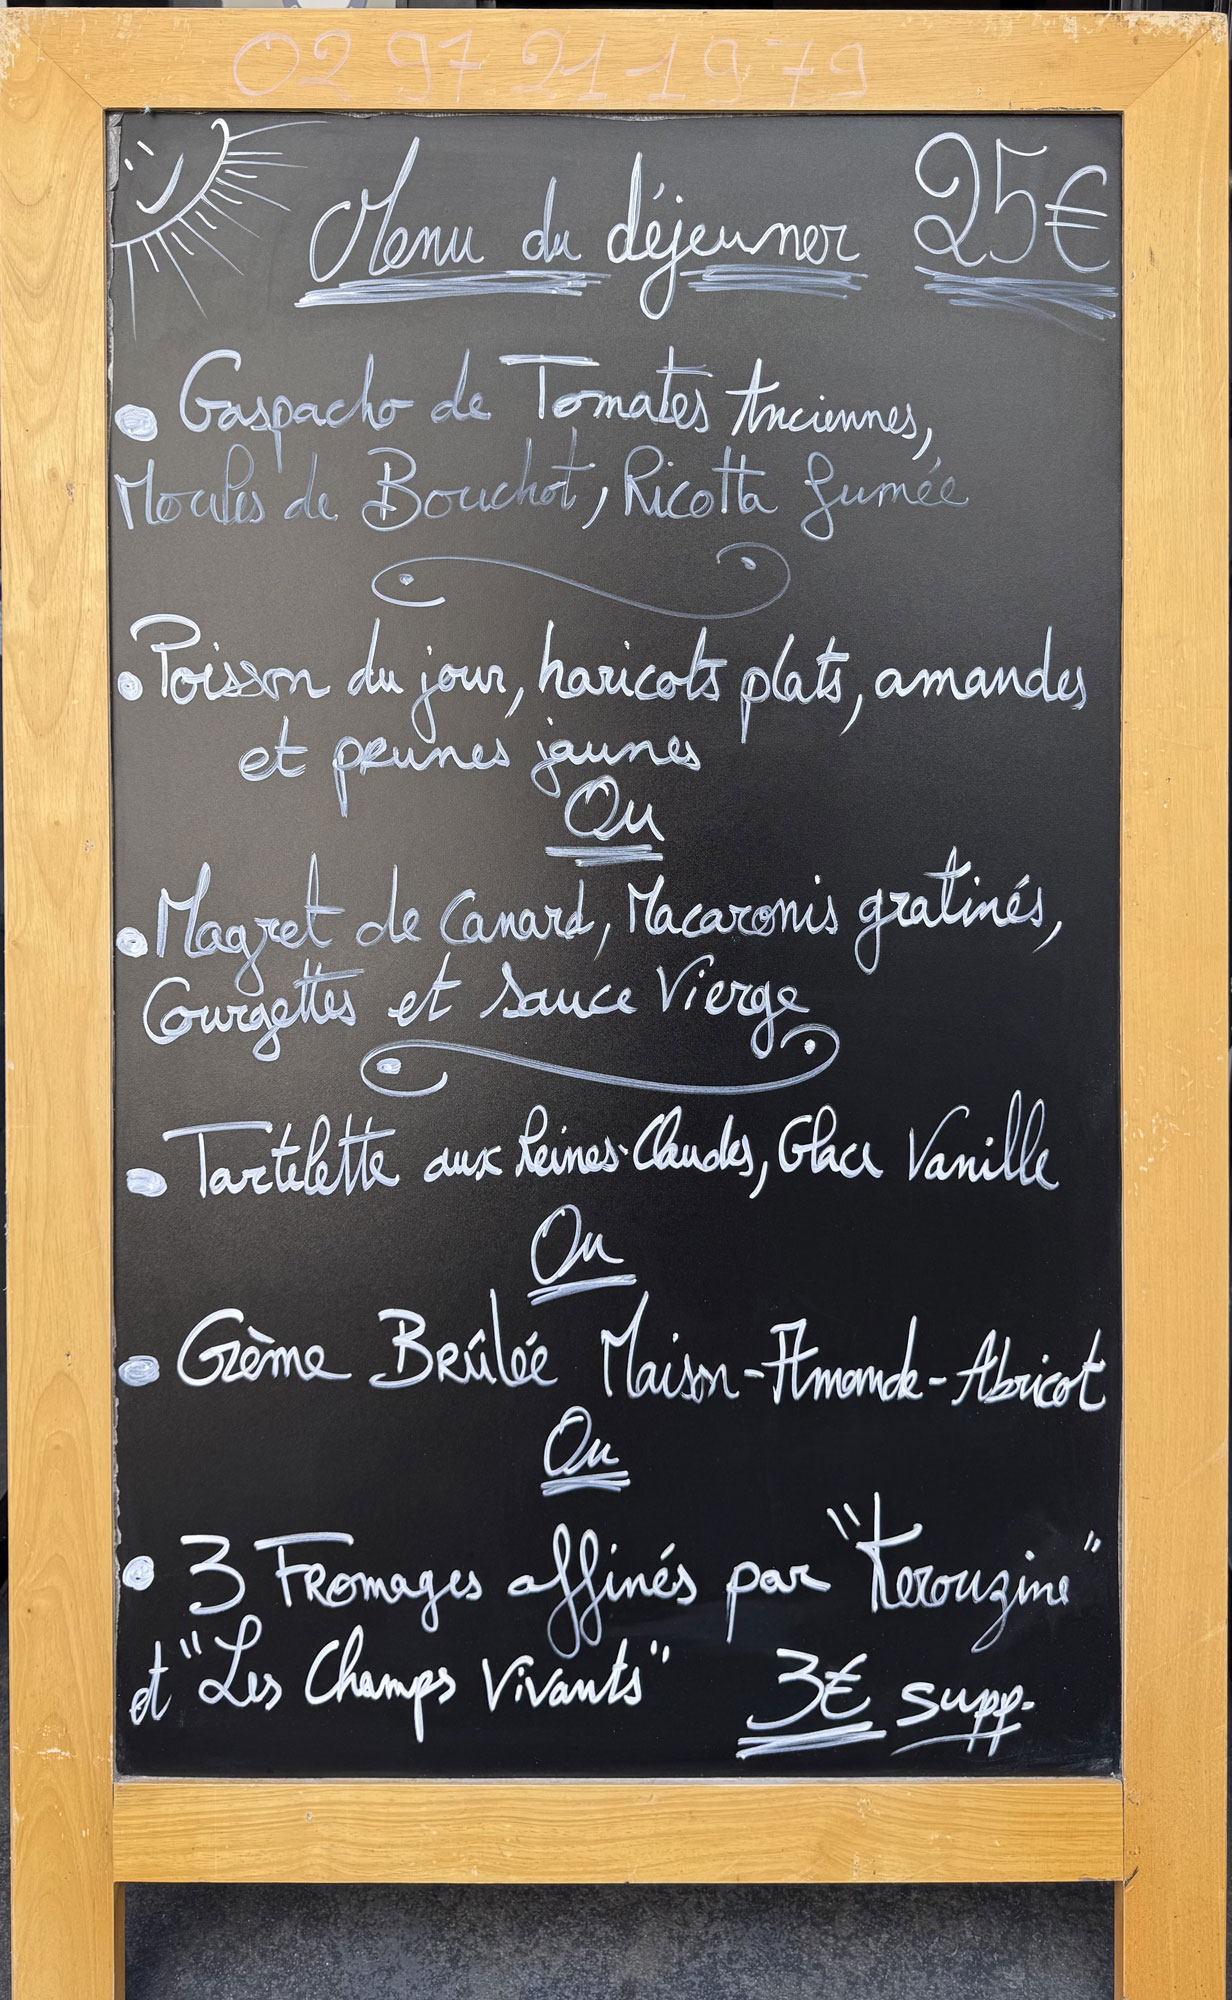 02 97 21 19 79
Menu du déjeuner 25€
• Gaspacho de Tomates Anciennes,
Moules de Bouchot, Ricotta fumée
• Poisson du jour, haricots plats, amandes
et prunes jaunes
Ou
• Magret de Canard, Macaronis gratinés,
Courgettes et Sauce Vierge
• Tartelette aux Reines-Claudes, Glace Vanille
Ou
• Crème Brûlée Maison-Amande-Abricot
Ou
• 3 Fromages affinés par "Kerouzine"
et "Les Champs Vivants" 3€ supp.